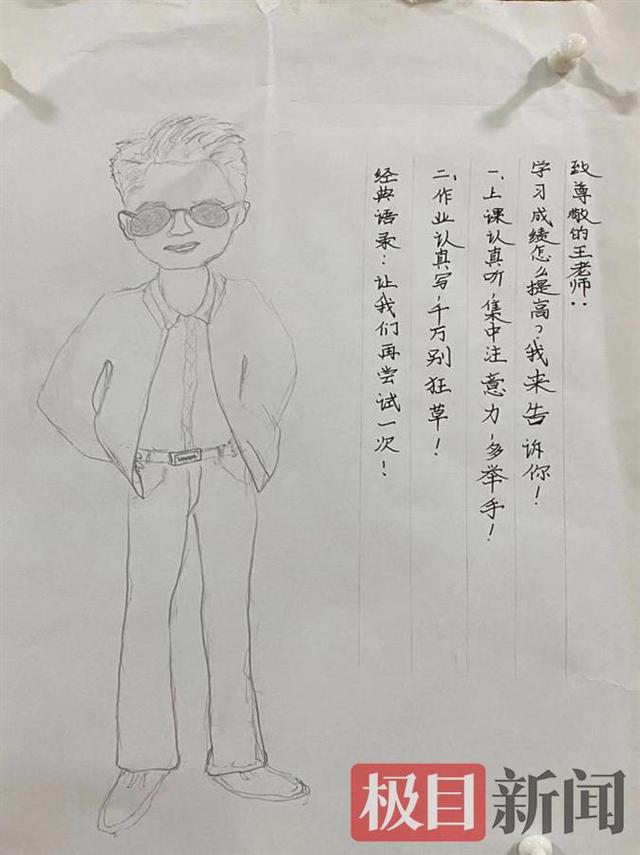 致尊敬的王老师：
学习成绩怎么提高？我来告诉你！
一、上课认真听，集中注意力，多举手！
二、作业认真写，千万别狂草！
经典语录：让我们再尝试一次！
极目新闻